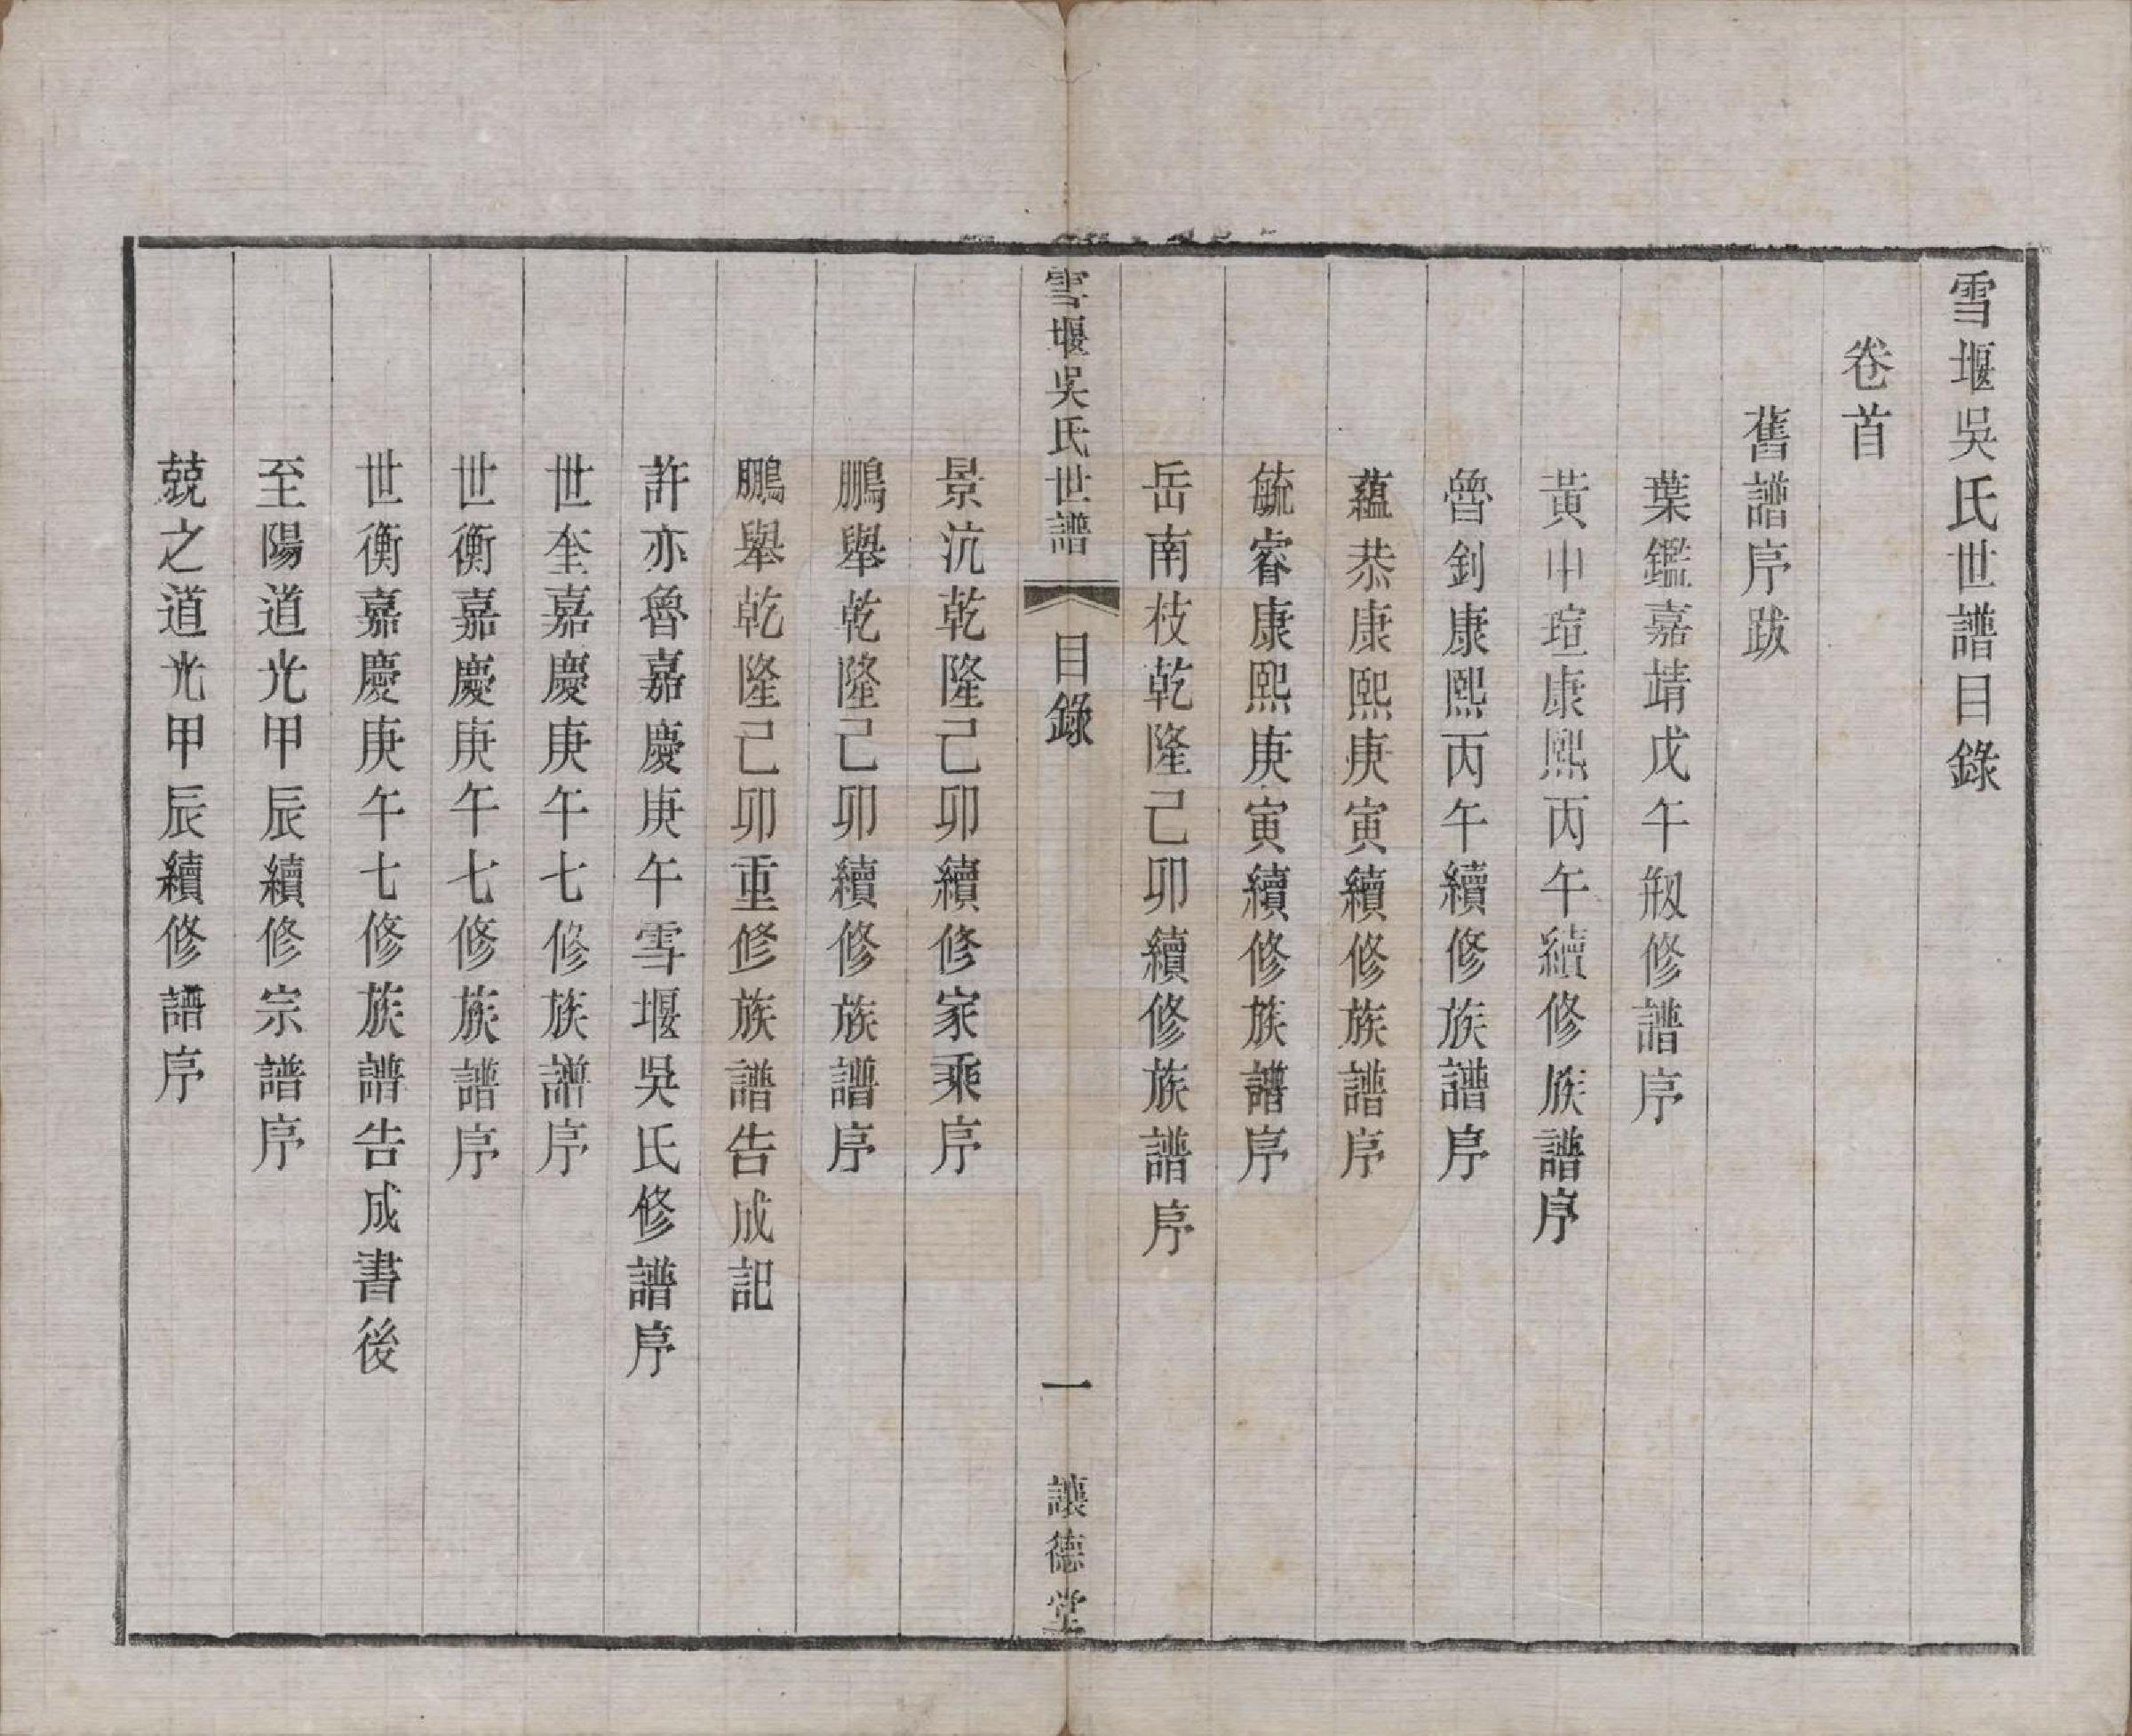 雪堰吳氏世譜目錄
卷首
舊譜序跋
葉鑑嘉靖戊午剏修譜序
黃中瑄康熙丙午續修族譜序
魯釗康熙丙午續修族譜序
蘊恭康熙庚寅續修族譜序
毓睿康熙庚寅續修族譜序
岳南枝乾隆己卯續修族譜序
雪堰吳氏世譜
目錄
一
讓德堂
景沆乾隆己卯續修家乘序
鵬舉乾隆己卯續修族譜序
鵬舉乾隆己卯重修族譜告成記
許亦魯嘉慶庚午雪堰吳氏修譜序
世奎嘉慶庚午七修族譜序
世衡嘉慶庚午七修族譜序
世衡嘉慶庚午七修族譜告成書後
至陽道光甲辰續修宗譜序
兢之道光甲辰續修譜序